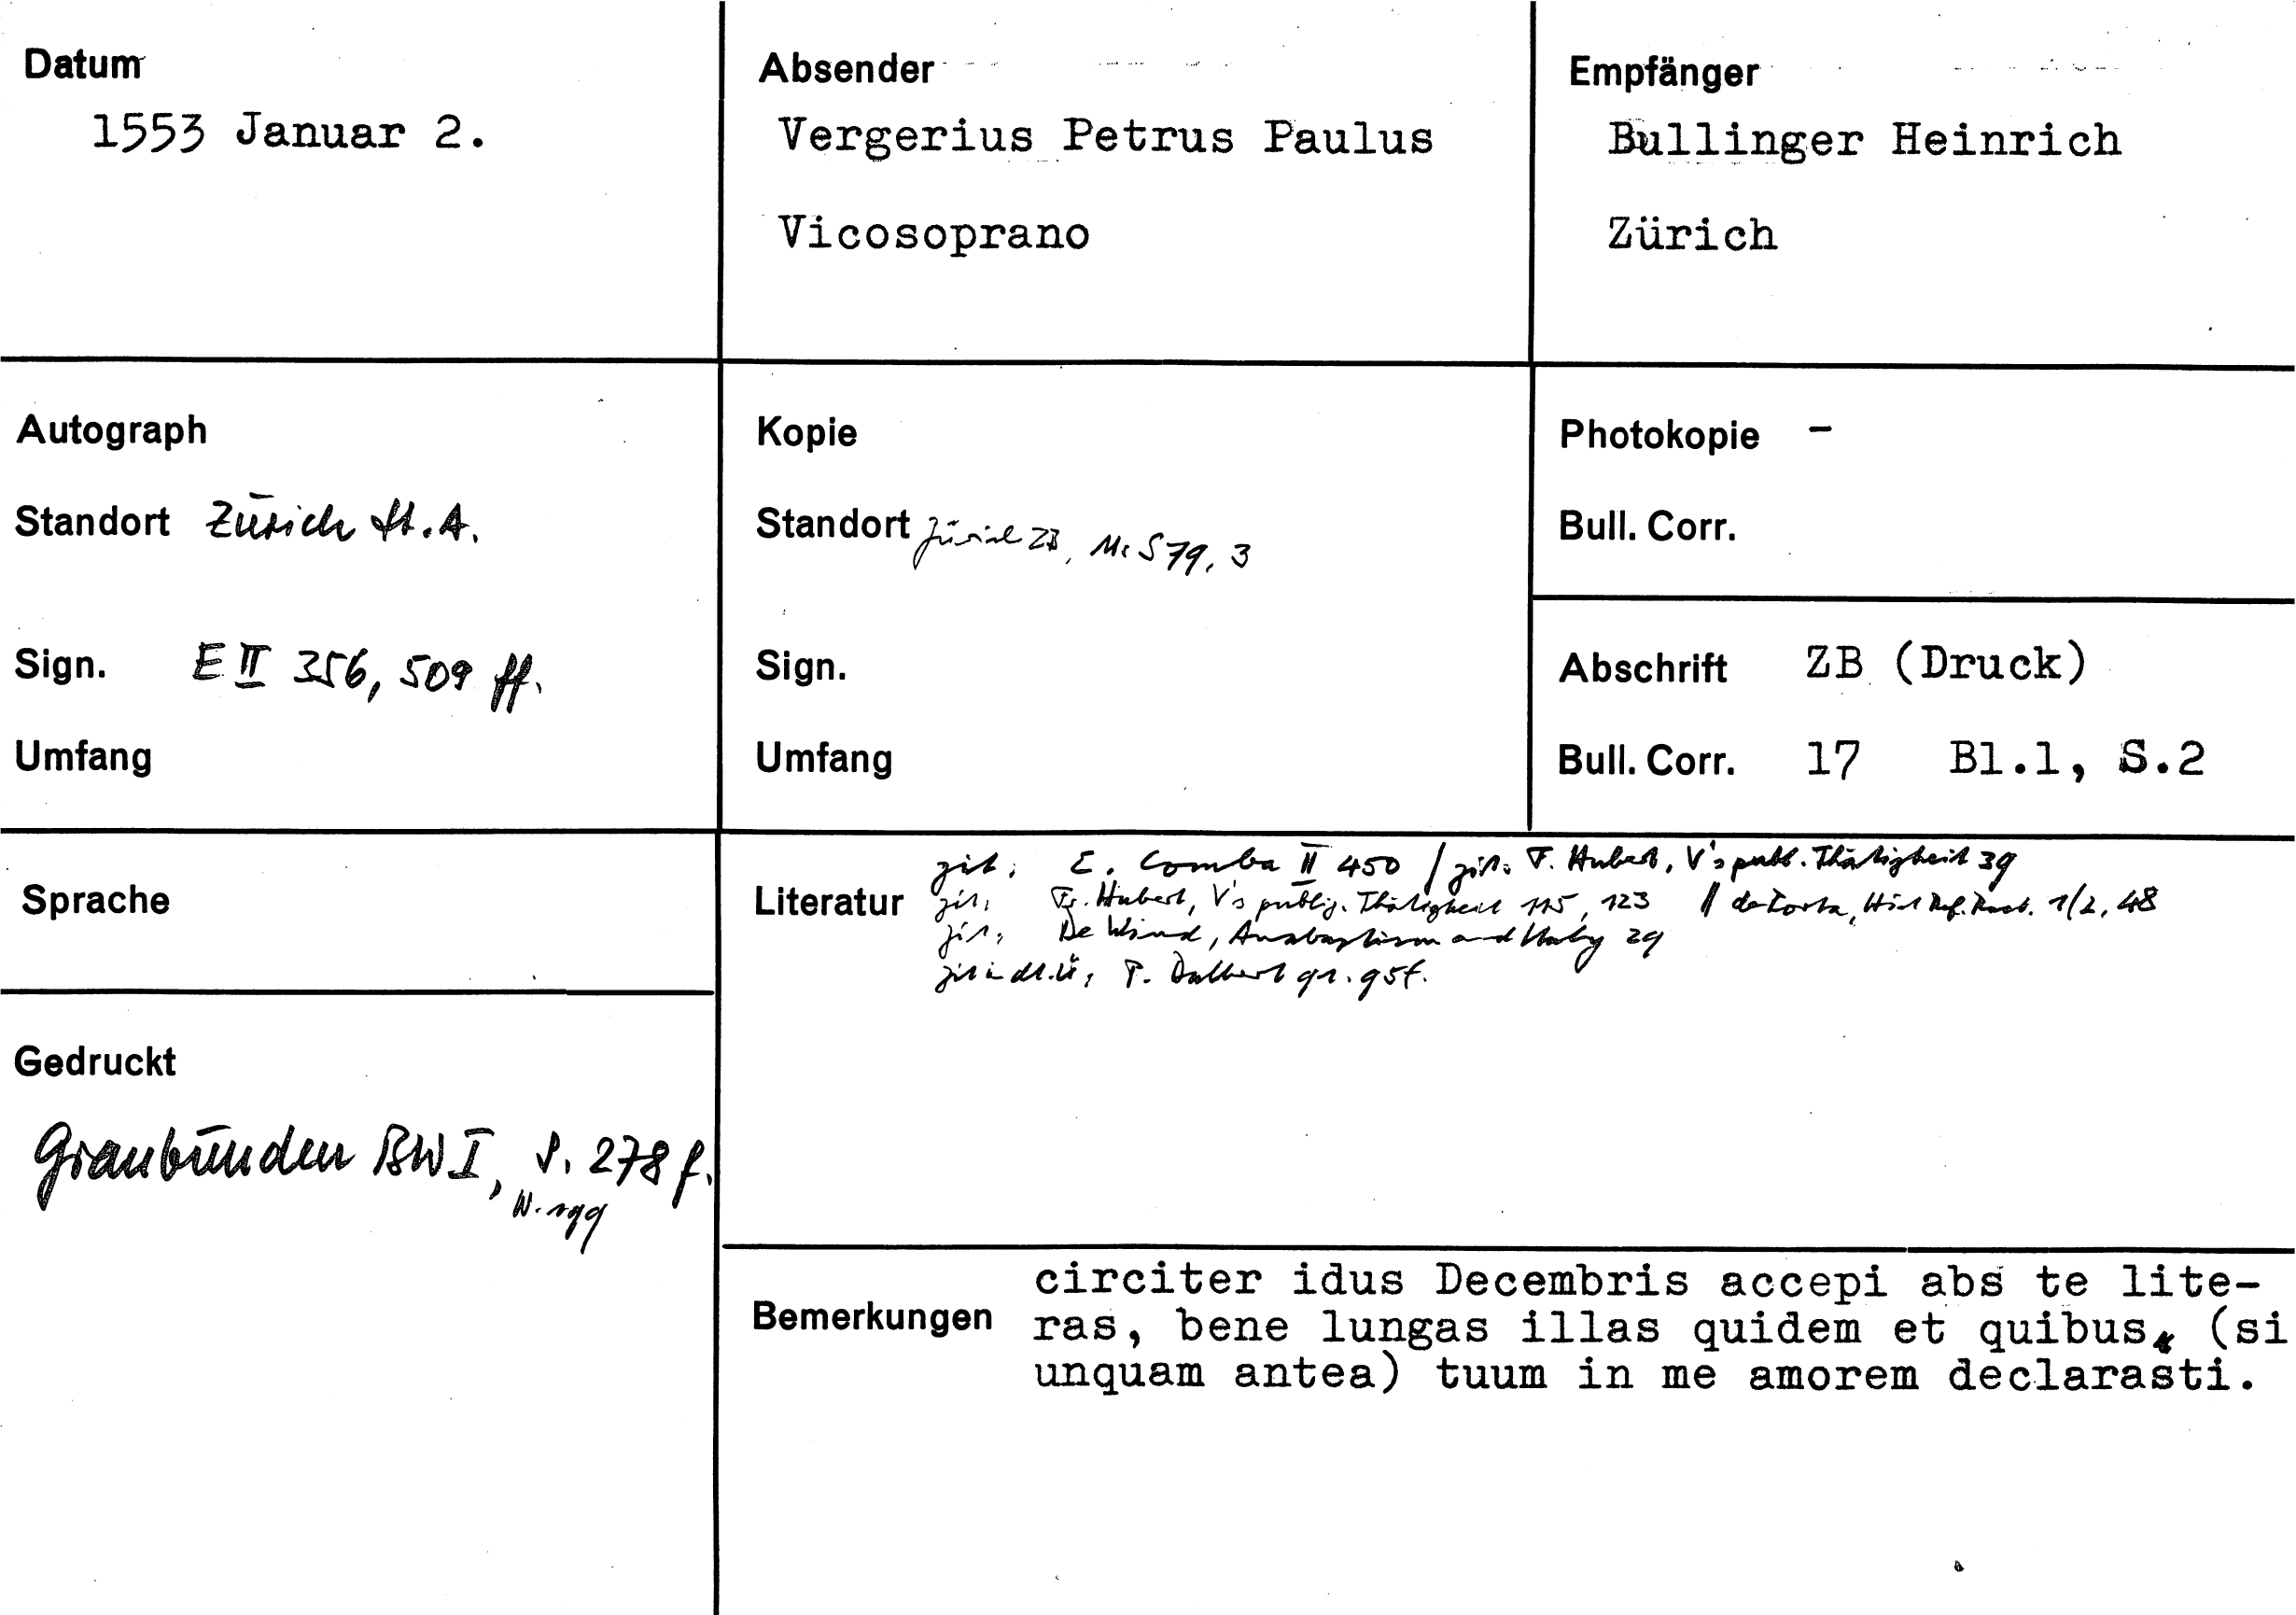 Datum
1553 Januar 2.
Absender
Vergerius Petrus Paulus
Vicosoprano
Empfänger
Bullinger Heinrich
Zürich
Autograph
Standort Zürich St.A.
Sign. E II 356, 509 ff.
Umfang
Kopie
Standort Zürich ZB, Ms S 79, 3
Sign.
Umfang
Photokopie -
Bull. Corr.
Abschrift ZB (Druck)
Bull. Corr. 17 Bl.1, S.2
Sprache
Gedruckt
Graubünden BW I, S. 278 f.
N. 199
Literatur
zit: E. Comba II 450 / zit: F. Hubert, V's publ. Thätigkeit 39
zit: Fr. Hubert, V's publiz. Thätigkeit 115, 123 // de Porta, Hist Ref. 1/2, 48
zit: De Wind, Anabaptism and Italy 29
zit in dt. Ü: P. Dalbert 95f.
Bemerkungen
circiter idus Decembris accepi abs te lite-
ras, bene lungas illas quidem et quibus (si
unquam antea) tuum in me amorem declarasti.